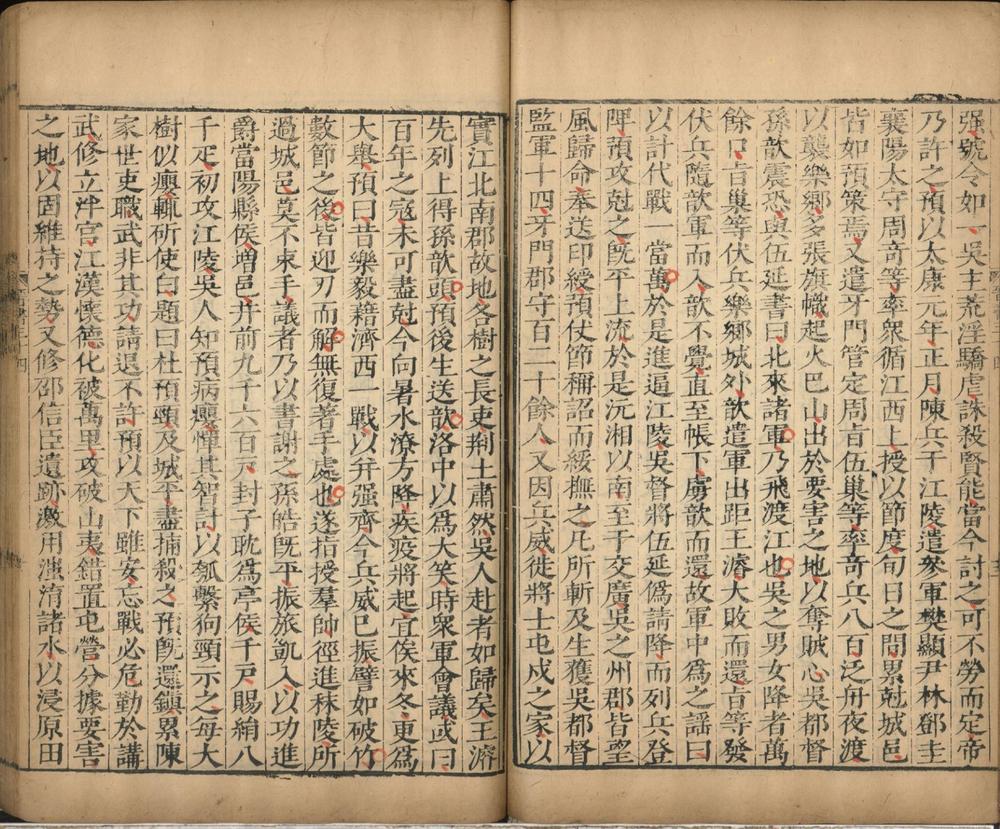 强號令如一吳主荒淫驕虐誅殺賢能當今討之可不勞而定帝
乃許之預以太康元年正月陳兵于江陵遣參軍樊顯尹林鄧圭
襄陽太守周奇等率衆循江西上授以節度旬日之間累尅城邑
皆如預策焉又遣牙門管定周旨伍巢等率奇兵八百泛舟夜渡
以襲樂鄉多張旗幟起火巴山出於要害之地以奪賊心吳都督
孫歆震恐與伍延書曰北來諸軍乃飛渡江也吳之男女降者萬
餘口旨巢等伏兵樂鄉城外歆遣軍出距王濬大敗而還旨等發
伏兵隨歆軍而入歆不覺直至帳下虜歆而還故軍中爲之謡曰
以計代戰一當萬於是進逼江陵吳督將伍延僞請降而列兵登
陴預攻尅之旣平上流於是沅湘以南至于交廣吳之州郡皆望
風歸命奉送印綬預仗節稱詔而綏撫之凡所斬及生獲吳都督
監軍十四牙門郡守百二十餘人又因兵威徙將士屯戍之家以
實江北南郡故地各樹之長吏荆土肅然吳人赴者如歸矣王濬
先列上得孫歆頭預後生送歆洛中以爲大笑時衆軍會議或曰
百年之寇未可盡尅今向暑水潦方降疾疫將起宜俟來冬更爲
大舉預曰昔樂毅藉濟西一戰以并强齊今兵威已振譬如破竹
數節之後皆迎刃而解無復著手處也遂指授羣帥徑進秣陵所
過城邑莫不束手議者乃以書謝之孫皓旣平振旅凱入以功進
爵當陽縣侯增邑并前九千六百戸封子耽爲亭侯千戸賜絹八
千疋初攻江陵吳人知預病癭憚其智計以瓠繫狗頸示之每大
樹似癭輒斫使白題曰杜預頸及城平盡捕殺之預旣還鎮累陳
家世吏職武非其功請退不許預以天下雖安忘戰必危勤於講
武修立泮宫江漢懷德化被萬里攻破山夷錯置屯營分據要害
之地以固維持之勢又修邵信臣遺跡激用滍淯諸水以浸原田